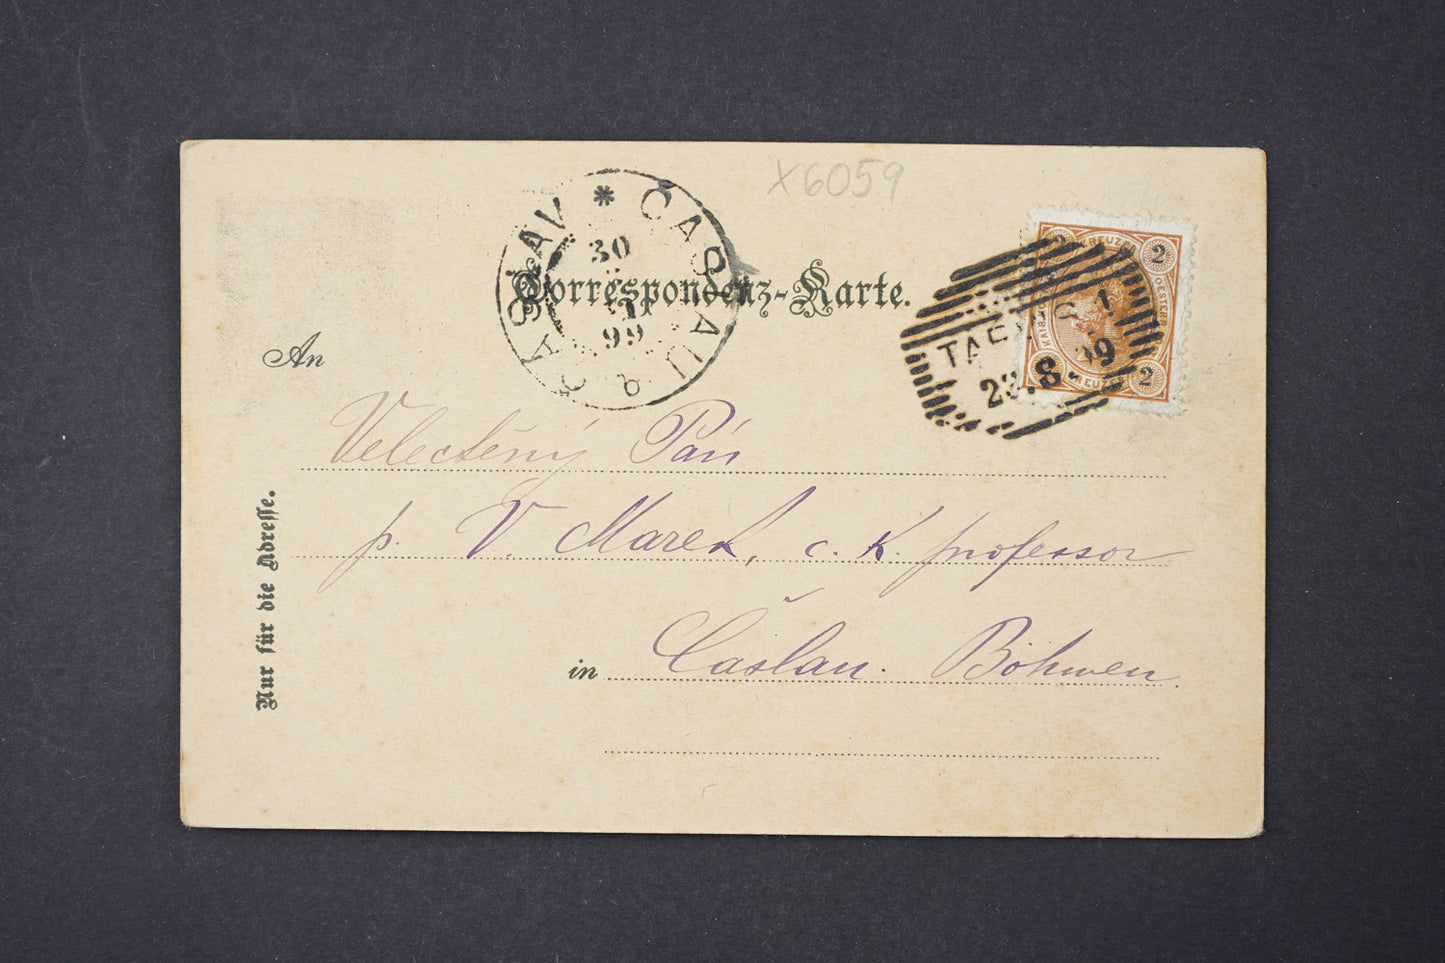 X6059
ČASLAU & ČASLAV *
30
8
99
Correspondenz-Karte.
2
KREUZER
2
2
23.8.99
An
Velectěný Pán
p. V. Marek, c. k. professor
in Časlau. Böhmen
Nur für die Adresse.